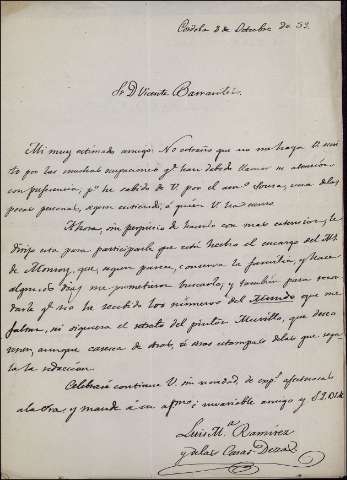 Cordoba 3 de Octubre de 52.
Sr. D. Vicente Barrantes.
Mi muy estimado amigo: No estraño que no me haya V. escri-
to por las muchas ocupaciones q.e han debido llamar su atencion
con preferencia, p.o he sabido de V. por el am.o Sousa, una de las
pocas personas, segun entiendo, á quien V. ha
Ahora, sin perjuicio de hacerlo con mas estension, le
dirijo esta para participarle que está hecho el encargo del Ms.
de Monroy, que, segun parece, conserva la familia, y hace
algunos dias me prometieron buscarlo; y tambien para recor-
darle q.e no he recibido los números del Mundo que me
faltan, ni siquiera el retrato del pintor Murillo, que deseo
tener, aunque caresca de otras, ú otras estampas de las que rega-
la la redaccion.
Celebraré continúe V. sin novedad, de esp.s afectuosas
á la Sra. y mande á su afmo; invariable amigo y S. Q. B. S. M.
Luis M.a Ramirez
y de las Casas-Deza